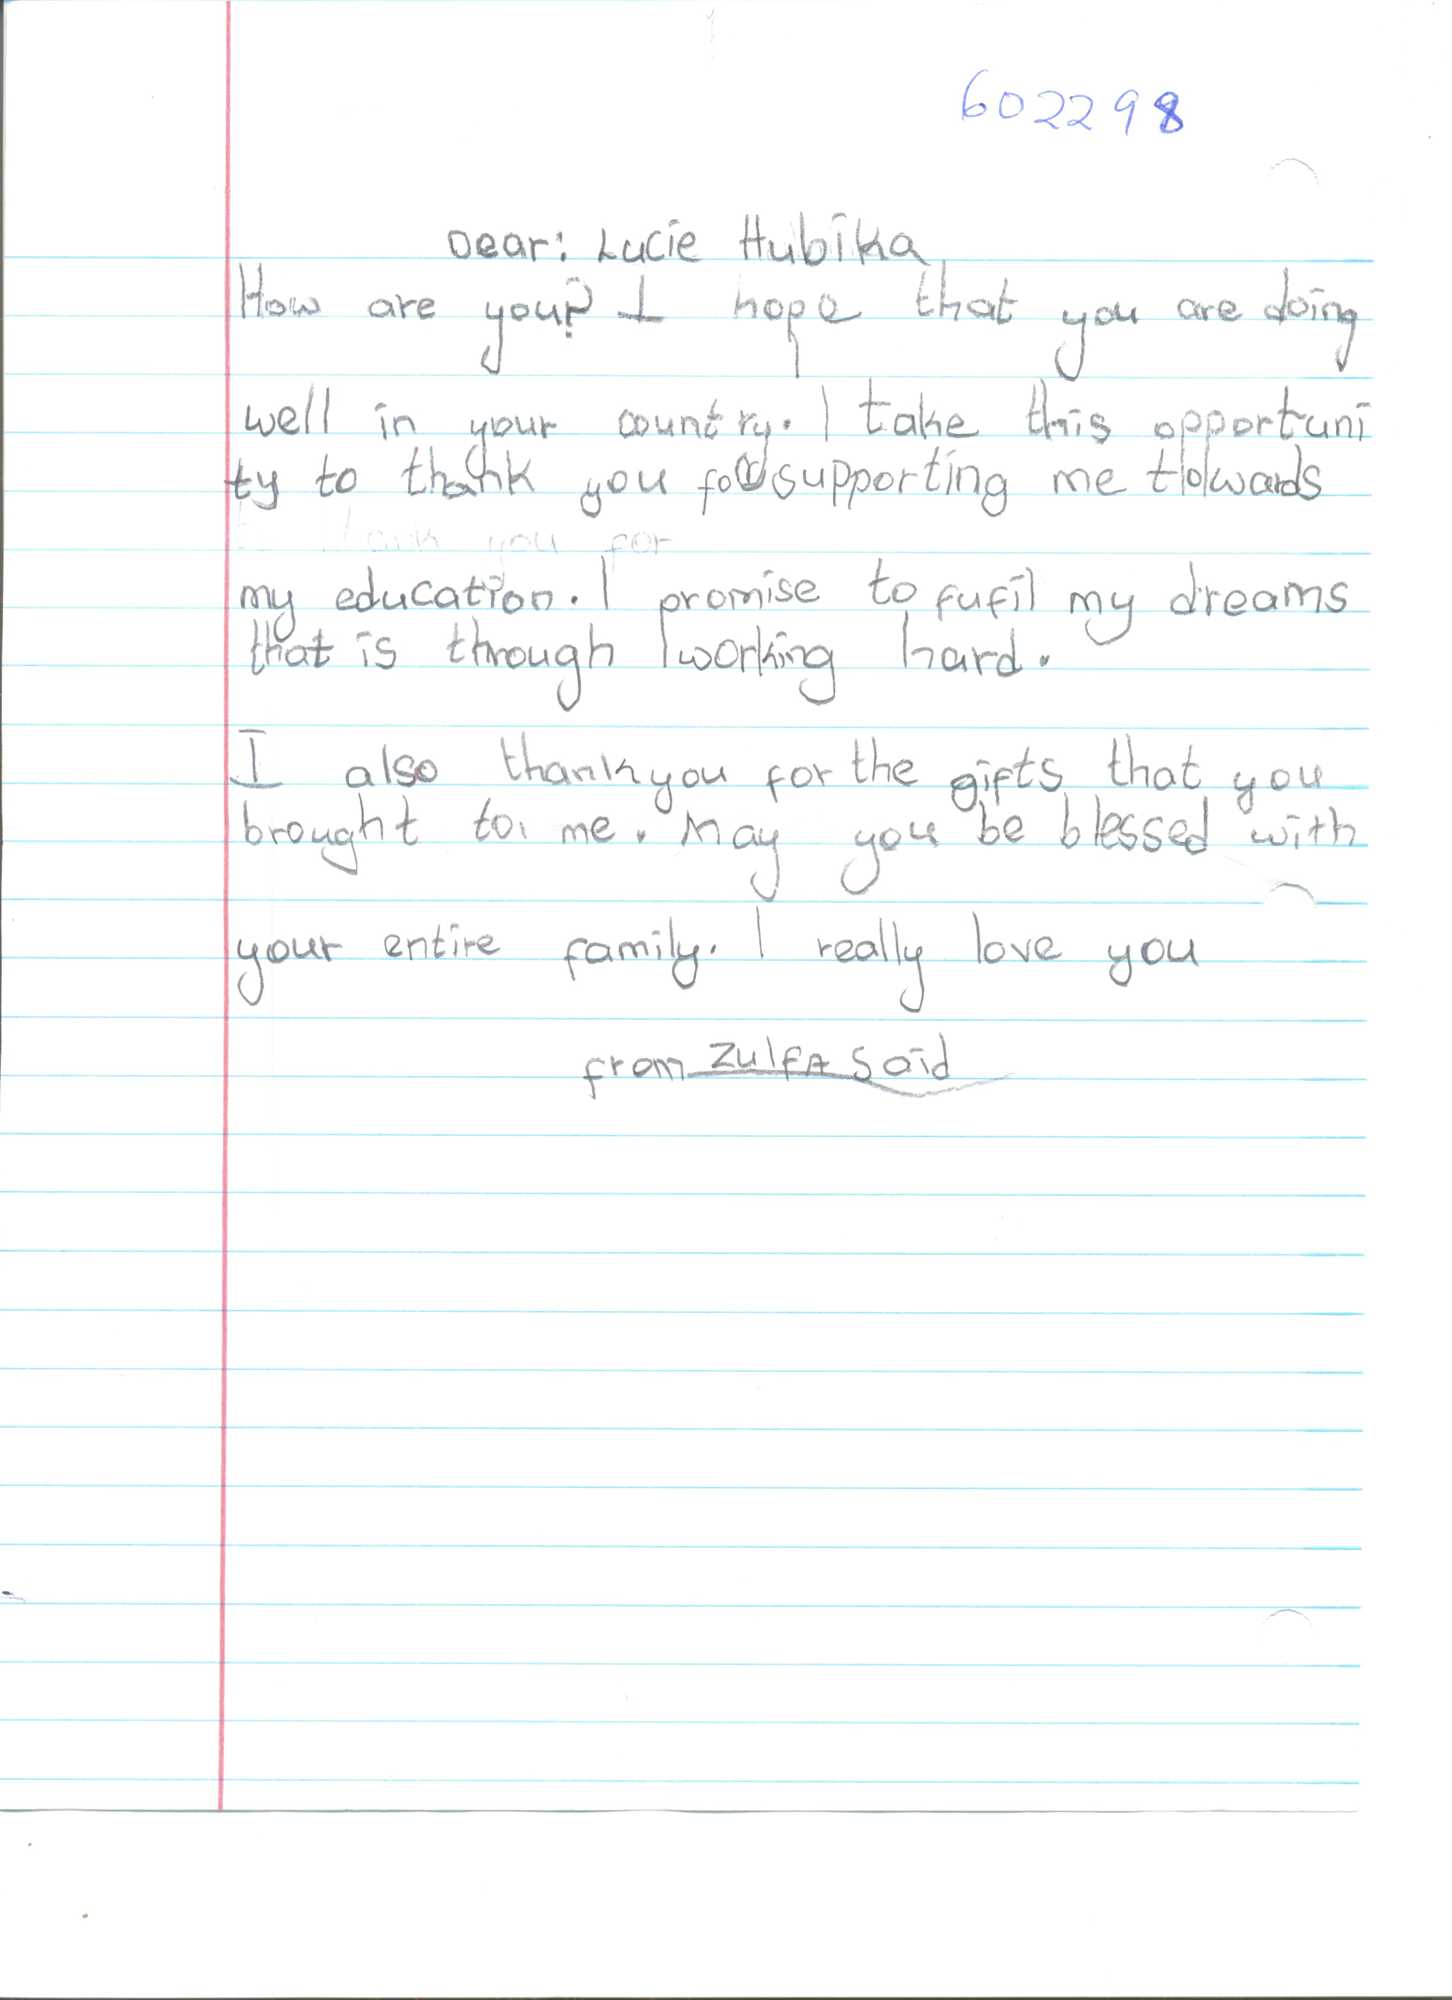 602298
Dear: Lucie Hubika
How are you? I hope that you are doing
well in your country. I take this opportuni
ty to thank you for supporting me towards
thank you for
my education. I promise to fufil my dreams
that is through working hard.
I also thankyou for the gifts that you
brought to me. May you be blessed with
your entire family. I really love you
from ZulfA Said